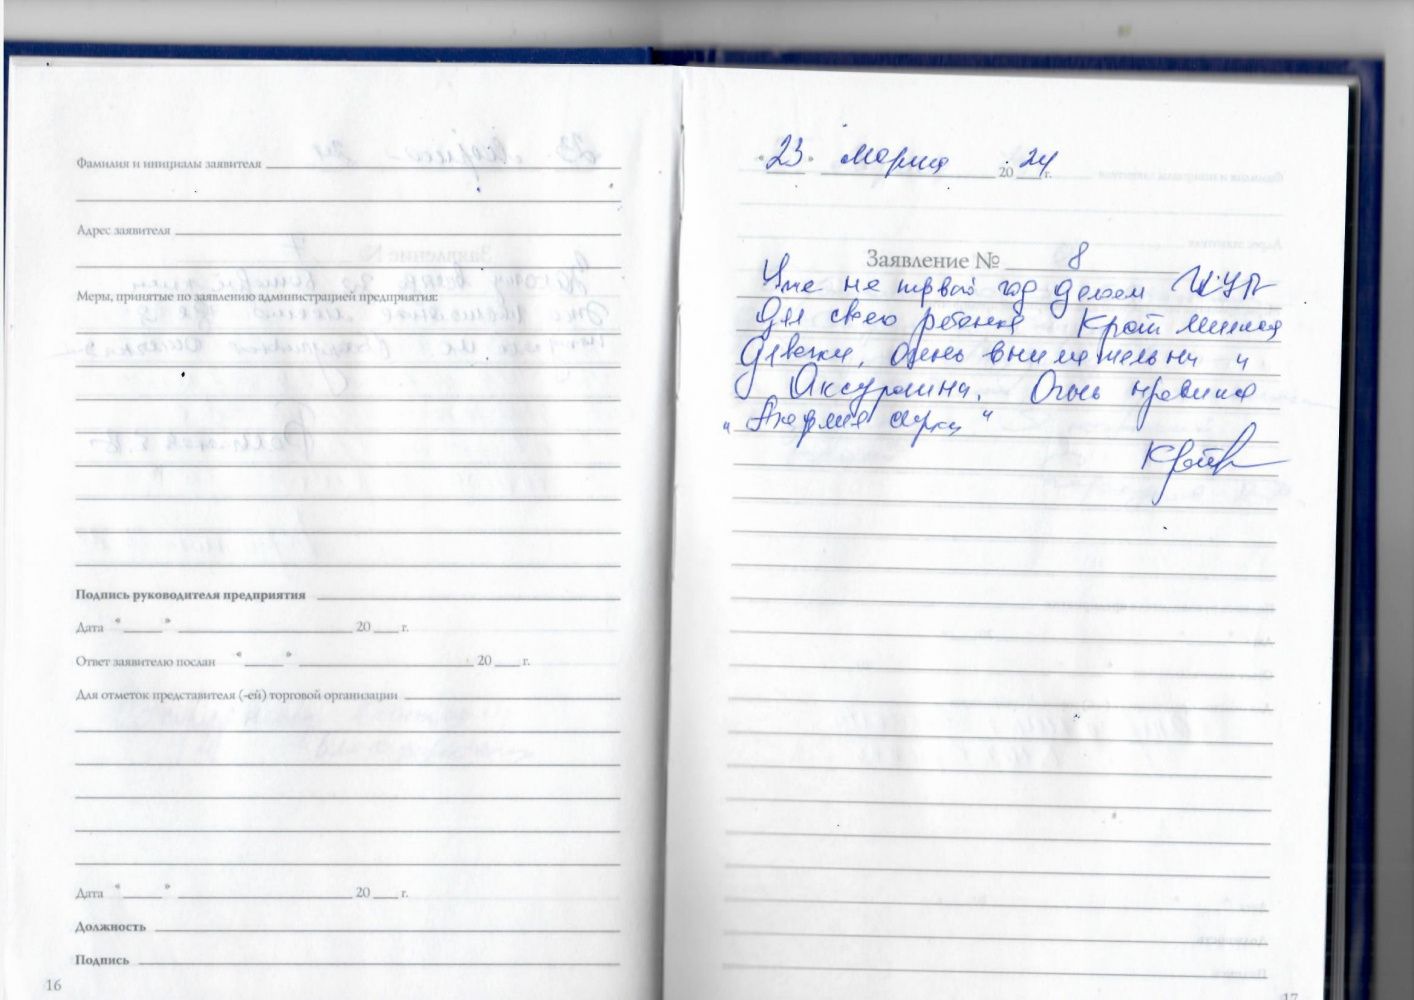 Фамилия и инициалы заявителя
Адрес заявителя
Меры, принятые по заявлению администрацией предприятия:
Подпись руководителя предприятия
Дата « » 20 г.
Ответ заявителю послан « » 20 г.
Для отметок представителя (-ей) торговой организации
Дата « » 20 г.
Должность
Подпись
16
«23» марта 2024 г.
Заявление № 8
Уже не первый год делаем
для свею ребенка
девочки, очень внимательны и
Аккуратны. Очень нравится
17